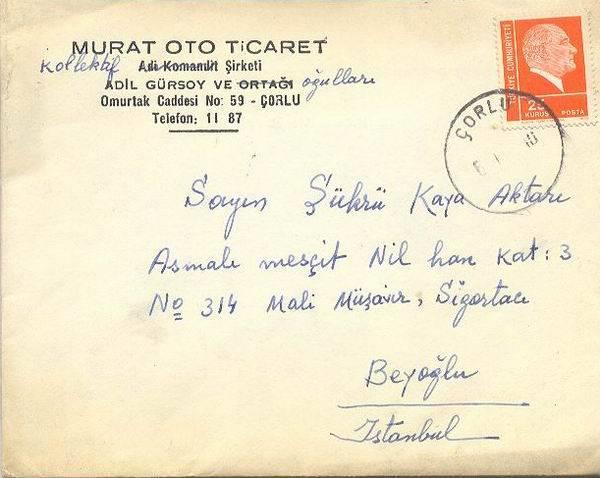 MURAT OTO TİCARET
Kollektif Adi Komandit Şirketi
ADİL GÜRSOY VE ORTAĞI oğulları
Omurtak Caddesi No: 59 - ÇORLU
Telefon: 11 87
TÜRKİYE CUMHURİYETİ
25
KURUŞ POSTA
ÇORLU
Sayın Şükrü Kaya Aktarı
Asmalı mesçit Nil han Kat: 3
No 314 Mali Müşavir, Sigortacı
Beyoğlu
İstanbul